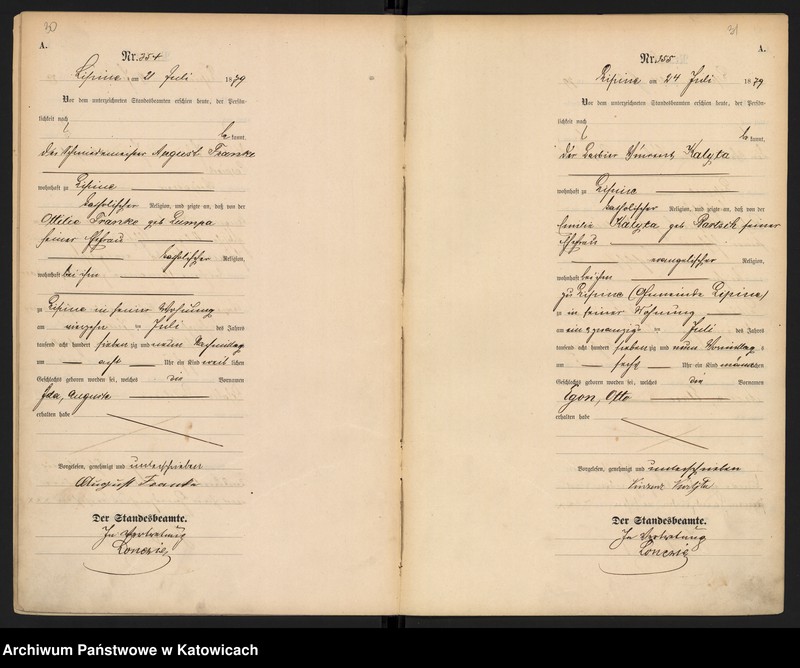 30
A.
Nr. 354
Lipine am 21 Juli 1879
Vor dem unterzeichneten Standesbeamten erschien heute, der Persön-
lichkeit nach
kannt,
der Schmiedemeister August Franke
wohnhaft zu Lipine
katholischer Religion, und zeigte an, daß von der
Ottilie Franke geb
seiner Ehefrau
katholischer Religion,
wohnhaft bei ihm
zu Lipine in seiner Wohnung
am Juli des Jahres
tausend acht hundert siebenzig und neun Nachmittag
um acht Uhr ein Kind weiblichen
Geschlechts geboren worden sei, welches die Vornamen
Ida, Auguste
erhalten habe
Vorgelesen, genehmigt und unterschrieben
August Franke
Der Standesbeamte.
In Vertretung
31
A.
Nr. 355
Lipine am 24 Juli 1879
Vor dem unterzeichneten Standesbeamten erschien heute, der Persön-
lichkeit nach
kannt,
der Barbier Vinzent Kalyta
wohnhaft zu Lipine
katholischer Religion, und zeigte an, daß von der
Emilie Kalyta geb Bartsch seiner
Ehefrau
evangelischer Religion,
wohnhaft bei ihm
zu Lipine (Gemeinde Lipine)
zu in seiner Wohnung
am ein zwanzig Juli des Jahres
tausend acht hundert siebenzig und neun Vormittag s
um sechs Uhr ein Kind männlichen
Geschlechts geboren worden sei, welches den Vornamen
Egon, Otto
erhalten habe
Vorgelesen, genehmigt und unterschrieben
Vinzenz Kalyta
Der Standesbeamte.
In Vertretung
Archiwum Państwowe w Katowicach